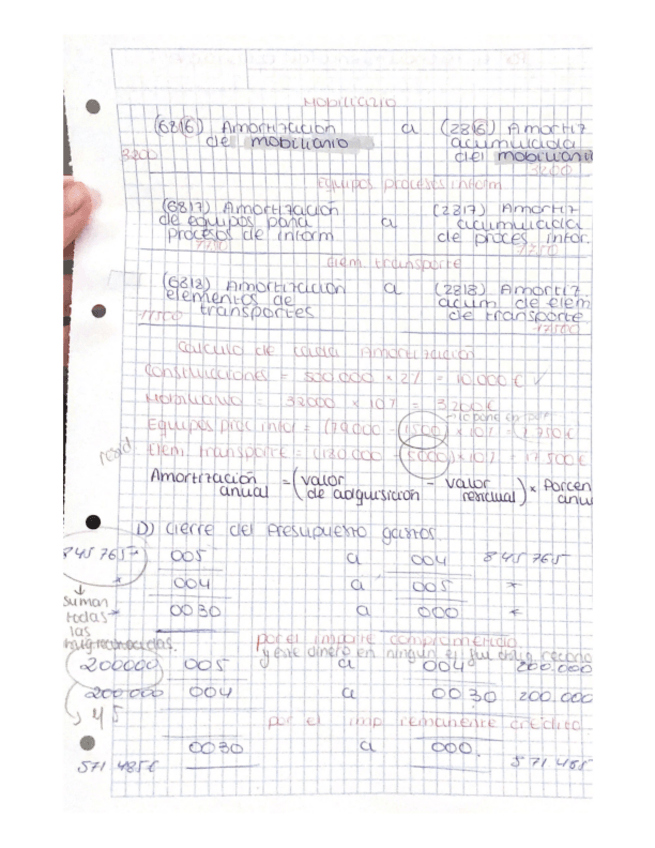 Mobiliario
(6816) Amortización a (2816) Amortiz
de mobiliario acumulada
3200 del mobiliari
3200
Equipos procesos inform
(6817) Amortización (2817) Amortiz
de equipos para a acumulada
procesos de inform de proces. infor.
7750 7750
Elem transporte
(6818) Amortización a (2818) Amortiz
elementos de acum de elem
17500 transportes de transporte
17500
Calculo de cada Amortización
Construcciones = 500.000 x 2% = 10.000 € ✓
Mobiliario = 32000 x 10% = 3.200€
Equipos proc infor = (79.000 - 1500) x 10% = 7.750€
resid. Elem transporte = (180.000 - 5000) x 10% = 17 500€
Amortización = (valor - valor ) x Porcen
anual de adquisición residual anu
D) Cierre del Presupuesto gastos.
845 765 005 a 004 845 765
" 004 a 005 "
↓
suman
todas " 0030 a 000 "
las
por el importe comprometido
y este dinero en ningún
200000 005 a 004 200.000
200.000 004 a 0030 200.000
45 por el imp remanente crédito
0030 a 000.
571.485€ 571.485